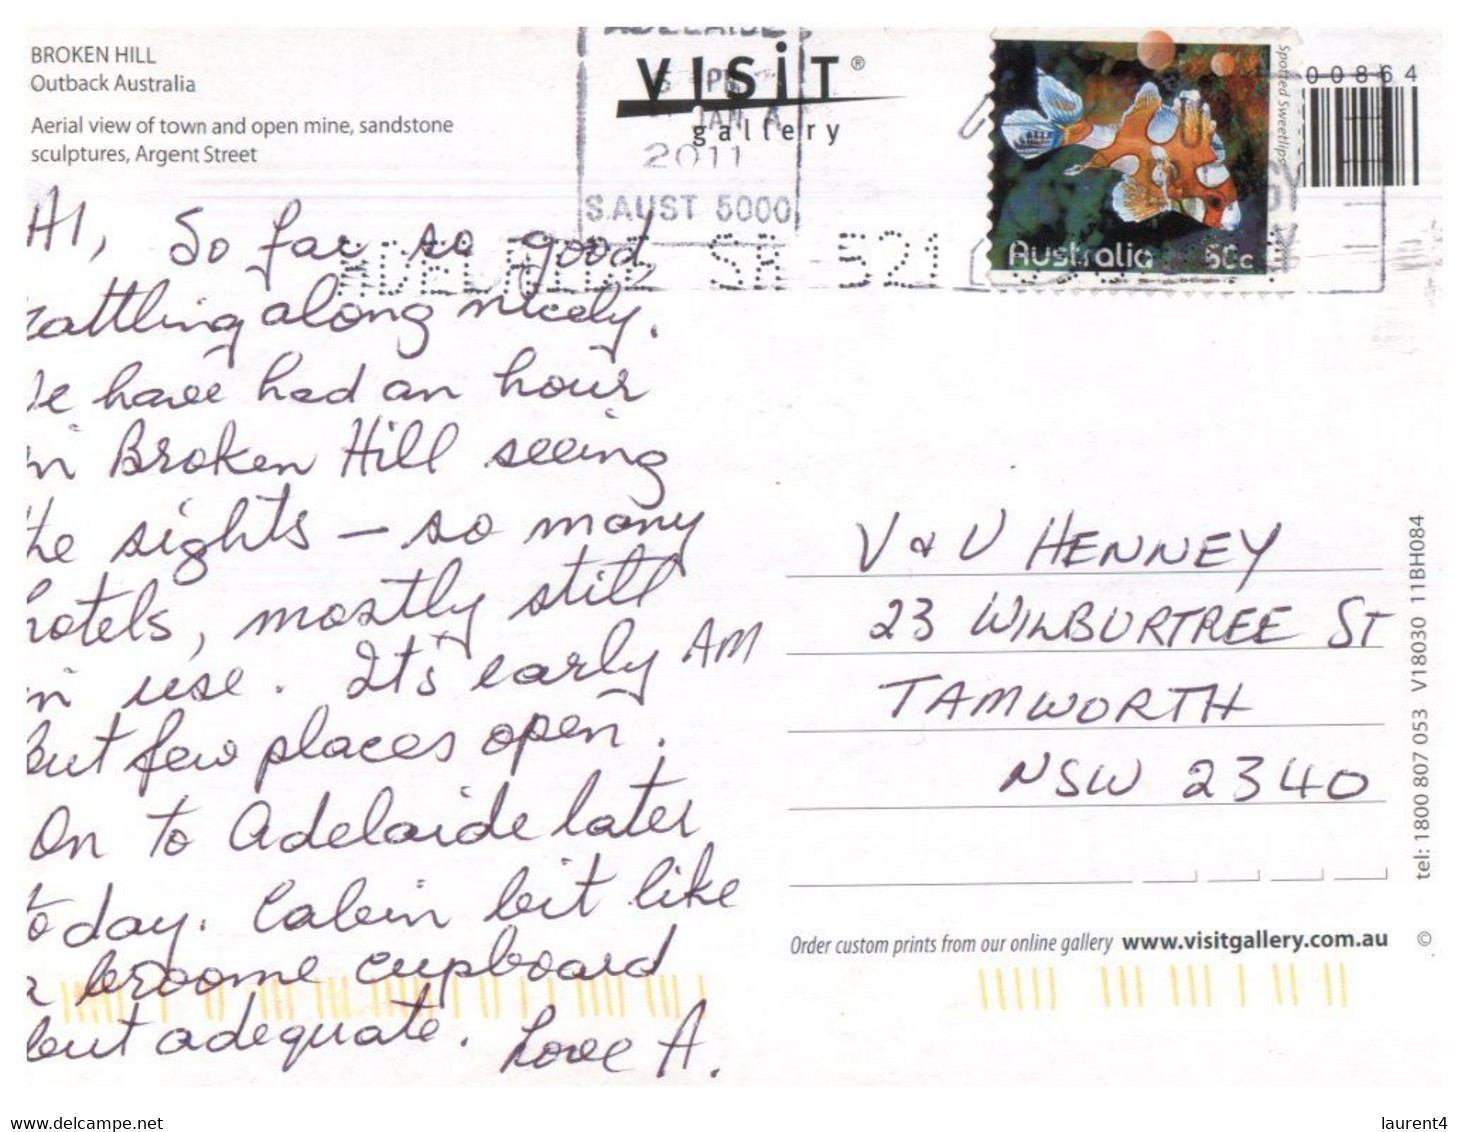 BROKEN HILL
Outback Australia
Aerial view of town and open mine, sandstone
sculptures, Argent Street
VISIT ®
gallery
ADELAIDE
6 PM
JAN A
2011
S.AUST 5000
ADELAIDE SA 521
Spotted Sweetlips
Australia 60c
00864
HI, So far so good
rattling along nicely.
We have had an hour
in Broken Hill seeing
the sights – so many
hotels, mostly still
in use. It's early AM
but few places open.
On to Adelaide later
today. Cabin bit like
a broome cupboard
but adequate. Love A.
V & V HENNEY
23 WILBURTREE ST
TAMWORTH
NSW 2340
tel: 1800 807 053 V18030 11BH084
Order custom prints from our online gallery www.visitgallery.com.au ©
www.delcampe.net
laurent4